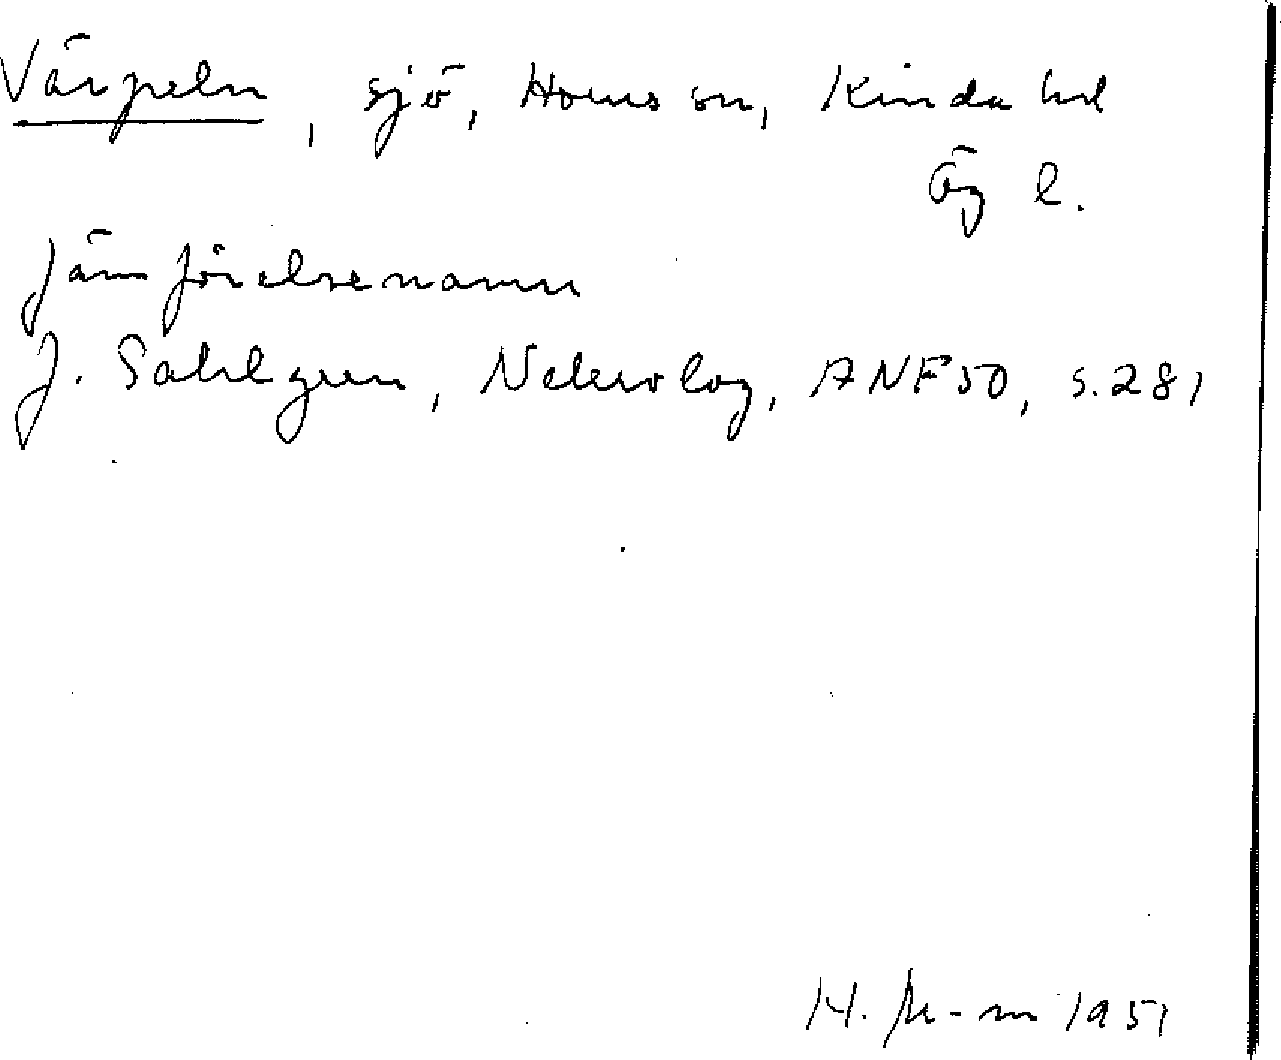 Värpeln, sjö, Horns sn, Kinda hd
Ög l.
Jämförelsenamn
J. Sahlgren, Nekrolog, ANF 50, s. 281
H. 1951